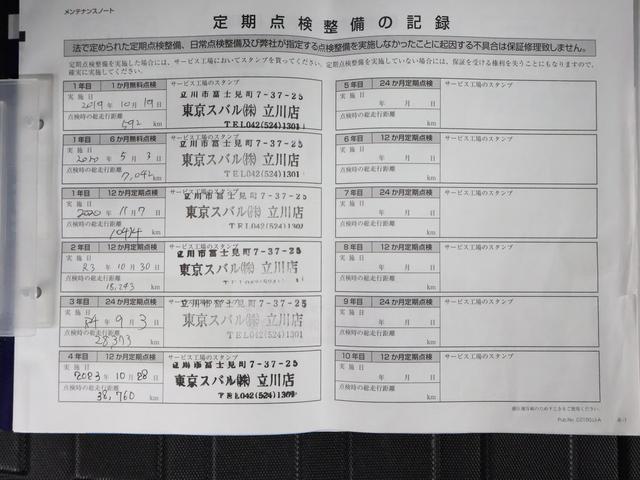 メンテナンスノート
定期点検整備の記録
法で定められた定期点検整備、日常点検整備及び弊社が指定する点検整備を実施しなかったことに起因する不具合は保証修理致しません。
定期点検整備を実施した場合には、サービス工場においてスタンプを買ってください。定期点検整備を実施していない場合には、保証を受ける権利を失うこともなりますので、
確実に実施してください。
1年目 1か月無料点検 サービス工場のスタンプ
実施日 2019年10月19日
点検時の総走行距離
592 km
立川市富士見町7-37-25
東京スバル㈱ 立川店
TEL042(524)1301
1年目 6か月無料点検 サービス工場のスタンプ
実施日 2020年5月3日
点検時の総走行距離
7,042 km
立川市富士見町7-37-25
東京スバル㈱ 立川店
TEL042(524)1301
1年目 12か月定期点検 サービス工場のスタンプ
実施日 2020年11月7日
点検時の総走行距離
10484 km
立川市富士見町7-37-25
東京スバル㈱ 立川店
TEL042(524)1301
2年目 12か月定期点検 サービス工場のスタンプ
実施日 R3年10月30日
点検時の総走行距離
18,243 km
立川市富士見町7-37-25
東京スバル㈱ 立川店
TEL042(524)1301
3年目 24か月定期点検 サービス工場のスタンプ
実施日 R4年9月3日
点検時の総走行距離
28,373 km
立川市富士見町7-37-25
東京スバル㈱ 立川店
TEL042(524)1301
4年目 12か月定期点検 サービス工場のスタンプ
実施日 2023年10月28日
点検時の総走行距離
38,760 km
立川市富士見町7-37-25
東京スバル㈱ 立川店
TEL042(524)1301
5年目 24か月定期点検 サービス工場のスタンプ
実施日 年 月 日
点検時の総走行距離
km
6年目 12か月定期点検 サービス工場のスタンプ
実施日 年 月 日
点検時の総走行距離
km
7年目 24か月定期点検 サービス工場のスタンプ
実施日 年 月 日
点検時の総走行距離
km
8年目 12か月定期点検 サービス工場のスタンプ
実施日 年 月 日
点検時の総走行距離
km
9年目 24か月定期点検 サービス工場のスタンプ
実施日 年 月 日
点検時の総走行距離
km
10年目 12か月定期点検 サービス工場のスタンプ
実施日 年 月 日
点検時の総走行距離
km